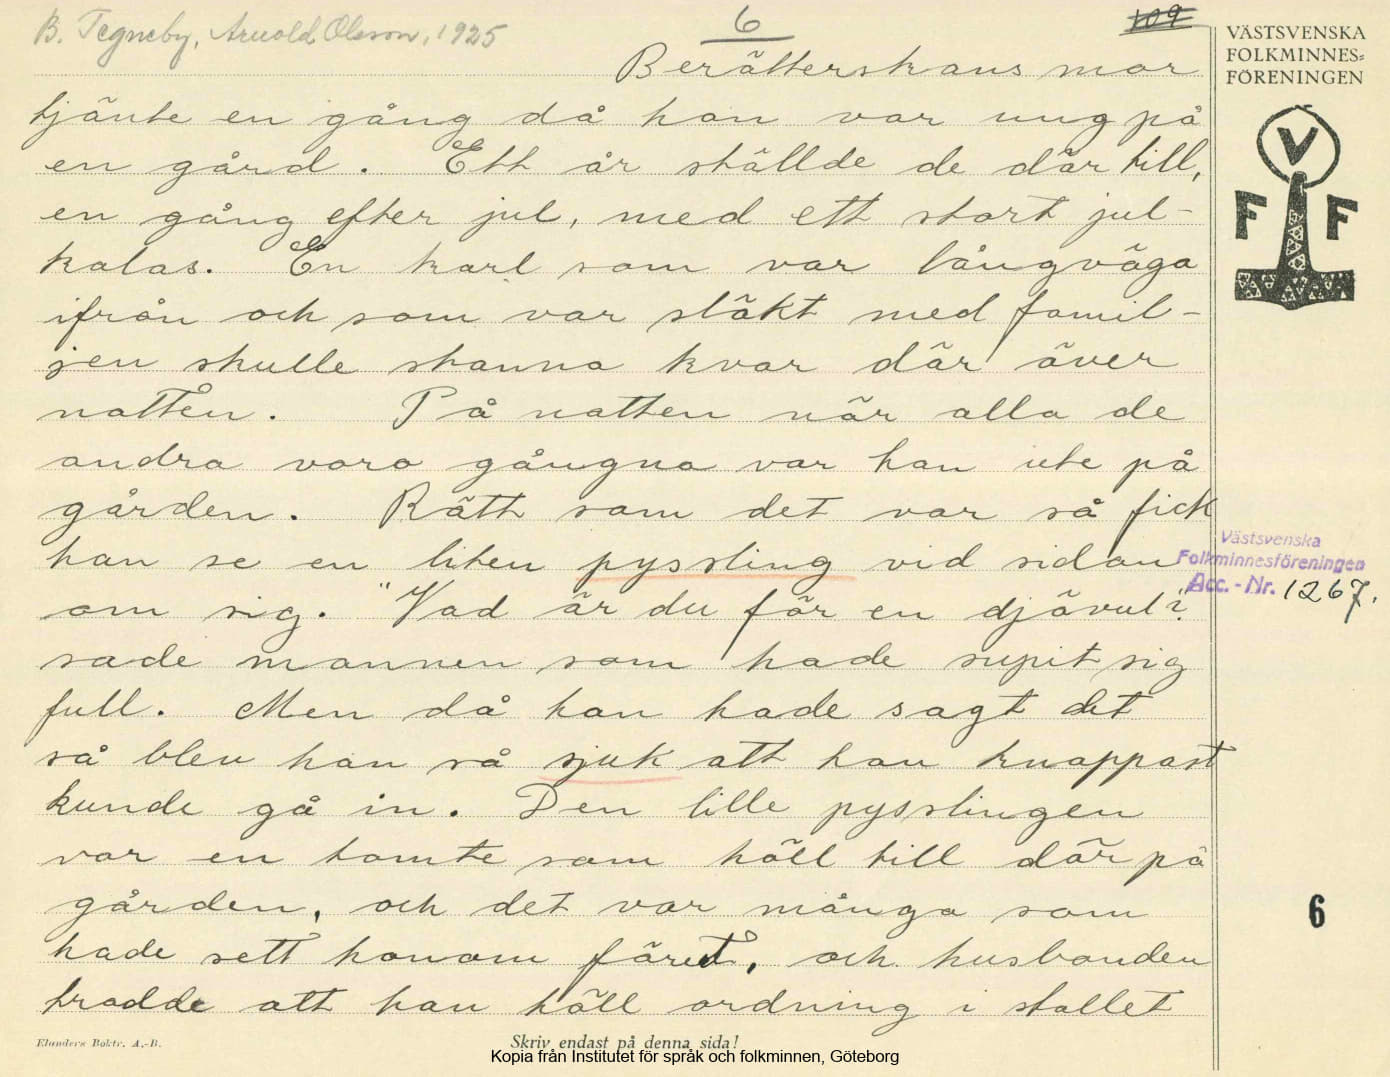 B. Tegneby, Arnold Olsson, 1925
6
109
VÄSTSVENSKA
FOLKMINNES=
FÖRENINGEN
V
F F
Berätterskans mor
tjänte en gång då hon var ung på
en gård. Ett år ställde de där till,
en gång efter jul, med ett stort jul-
kalas. En karl som var långväga
ifrån och som var släkt med famil-
jen skulle stanna kvar där över
natten. På natten när alla de
andra voro gångna var han ute på
gården. Rätt som det var så fick
han se en liten pyssling vid sidan
om sig. "Vad är du för en djävul?"
sade mannen som hade supit sig
full. Men då han hade sagt det
så blev han så sjuk att han knappast
kunde gå in. Den lille pysslingen
var en tomte som höll till där på
gården, och det var många som
hade sett honom förut, och husbonden
trodde att han höll ordning i stallet
Västsvenska
Folkminnesföreningen
Acc.-Nr. 1267.
6
Elanders Boktr. A.-B.
Skriv endast på denna sida!
Kopia från Institutet för språk och folkminnen, Göteborg